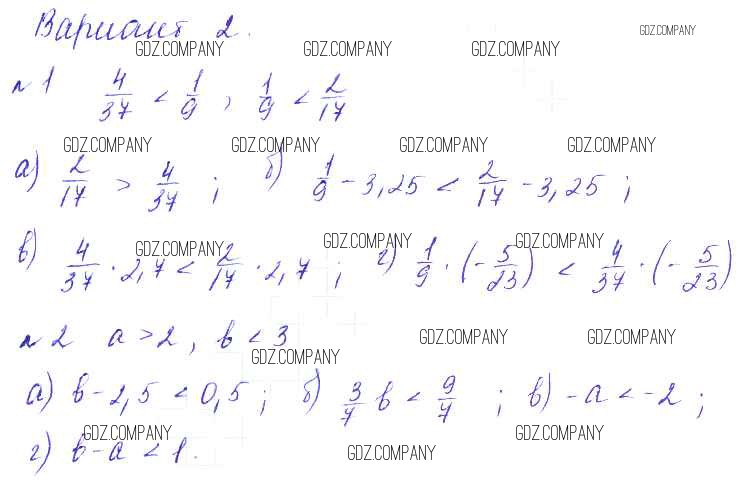 Вариант 2.
GDZ.COMPANY GDZ.COMPANY GDZ.COMPANY GDZ.COMPANY
№1 4/37 < 1/9, 1/9 < 2/17
GDZ.COMPANY GDZ.COMPANY GDZ.COMPANY GDZ.COMPANY
а) 2/17 > 4/37 ; б) 1/9 - 3,25 < 2/17 - 3,25 ;
GDZ.COMPANY GDZ.COMPANY GDZ.COMPANY
в) 4/37 · 2,7 < 2/17 · 2,7 ; г) 1/9 · (- 5/23) < 4/37 · (- 5/23)
№2 a > 2, b < 3
GDZ.COMPANY GDZ.COMPANY GDZ.COMPANY
а) b - 2,5 < 0,5 ; б) 3/7 b < 9/7 ; в) -a < -2 ;
GDZ.COMPANY GDZ.COMPANY GDZ.COMPANY
г) b - a < 1.